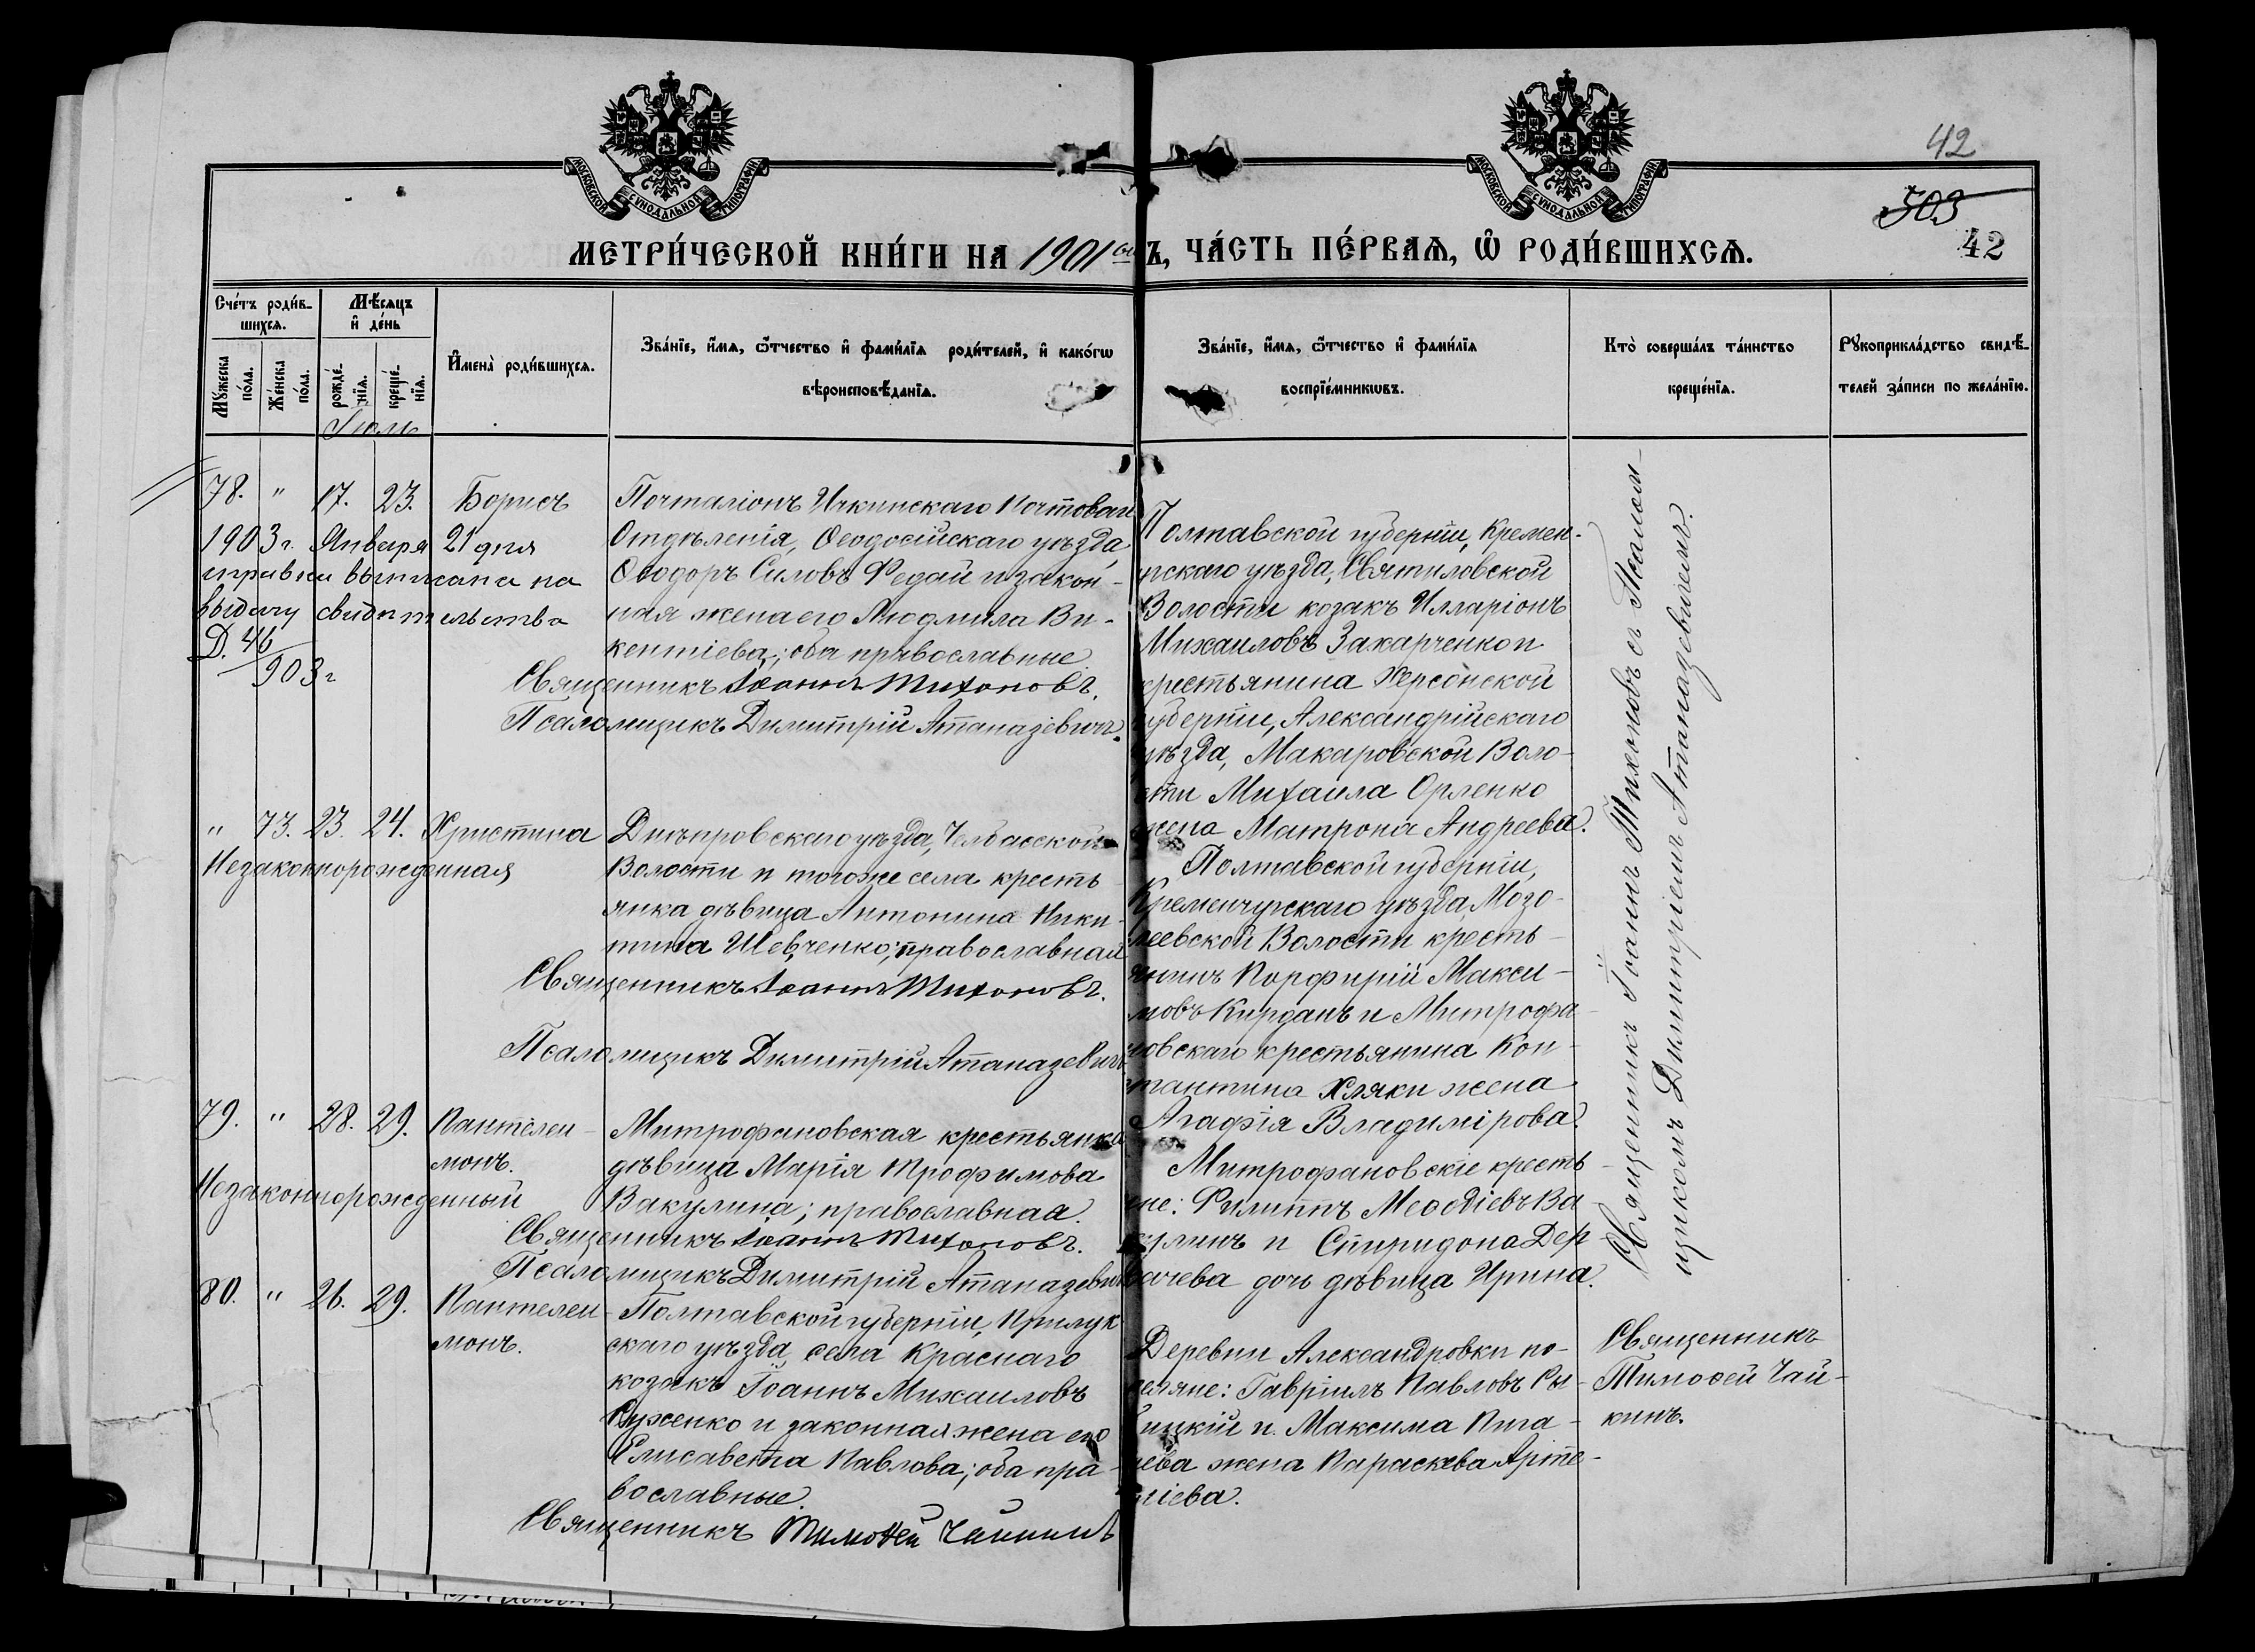 42
503
42
МОСКОВСКОЙ СУНОДАЛЬНОЙ ТИПОГРАФІИ
МОСКОВСКОЙ СУНОДАЛЬНОЙ ТИПОГРАФІИ
МЕТРИ́ЧЕСКОЙ КНИ́ГИ НА 1901 ъ, ЧА́СТЬ ПЕ́РВАѦ, Ѡ РОДИ́ВШИХСѦ.
Сче́тъ роди́в-
шихсѧ.
Мѣ́сѧцъ
и де́нь
Мꙋ́жеска
по́ла.
Же́нска
по́ла.
рожде́-
нїѧ.
креще́-
нїѧ.
Имена̀ роди́вшихсѧ.
Зва́нїе, и́мѧ, ѻ́тчество и фами́лїѧ роди́телей, и како́гѡ
вѣроисповѣ́данїѧ.
Зва́нїе, и́мѧ, ѻ́тчество и фами́лїѧ
воспрїе́мникѡвъ.
Кто̀ соверша́лъ та́инство
креще́нїѧ.
Рꙋкоприкла́дство свидѣ́-
телей за́писи по жела́нїю.
Іюль
78. " 17. 23. Борисъ
1903 г. Января 21 дня
справка выписана на
выдачу свидѣтельства
Д. 46
903 г
Почталіонъ Ичкинскаго Почтоваго
Отдѣленія, Ѳеодосійскаго уѣзда,
Ѳеодоръ Силовъ Федай и закон-
ная жена его Людмила Ви-
кентіева; оба православные.
Священникъ Іоаннъ Тихоновъ.
Псаломщикъ Димитрій Атаназевичъ.
Полтавской губерніи, Кремен-
чугскаго уѣзда, Святиловской
Волости козакъ Илларіонъ
Михаиловъ Захарченко и
крестьянина Херсонской
губерніи, Александрійскаго
уѣзда, Макаровской Воло-
сти Михаила Орленко
жена Матрона Андреева.
" 73. 23. 24. Христина
Незаконнорожденная
Днѣпровскаго уѣзда, Челбасской
Волости и тогоже села кресть
янка дѣвица Антонина Ники-
тина Шевченко; православная
Священникъ Іоаннъ Тихоновъ.
Псаломщикъ Димитрій Атаназевичъ
Полтавской губерніи,
Кременчугскаго уѣзда, Мозо-
леевской Волости кресть-
янинъ Порфирій Макси-
мовъ Кирданъ и Митрофа-
новскаго крестьянина Кон-
стантина Хляки жена
Агафія Владимірова.
79. " 28. 29. Пантелеи-
монъ.
Незаконнорожденный
Митрофановская крестьянка
дѣвица Марія Трофимова
Вакулина; православная.
Священникъ Іоаннъ Тихоновъ.
Псаломщикъ Димитрій Атаназевичъ
Митрофановскіе кресть-
яне: Филиппъ Меѳодіевъ Ва
кулинъ и Спиридона Дер
качева дочь дѣвица Ирина.
Священникъ Іоаннъ Тихоновъ съ Псалом-
щикомъ Димитріемъ Атаназевичемъ.
80. " 26. 29. Пантелеи-
монъ.
Полтавской губерніи, Прилук
скаго уѣзда, села Краснаго
козакъ Іоаннъ Михаиловъ
законная жена его
Елисавета Павлова; оба пра-
вославные.
Священникъ Тимоѳей Чайкинъ
Деревни Александровки по-
селяне: Гавріилъ Павловъ Сы-
и Максима Пига-
рева жена Параскева Арте-
міева.
Священникъ
Тимоѳей Чай-
кинъ.